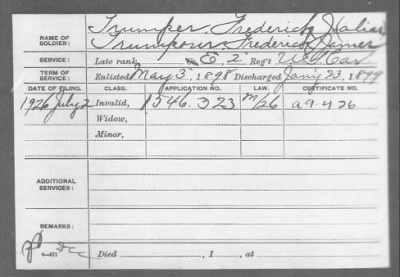 Trumper, Frederick, Alias
NAME OF SOLDIER: Trumpour, Frederick James
SERVICE: Late rank, E, 2 Reg't U.S. Cav
TERM OF SERVICE: Enlisted May 3, 1898 Discharged Jany 23, 1899
DATE OF FILING. CLASS. APPLICATION NO. LAW. CERTIFICATE NO.
1926 July 2 Invalid, 1546.323 M/26 a 9.4 26
Widow,
Minor,
ADDITIONAL SERVICES:
REMARKS:
Died , 1 , at